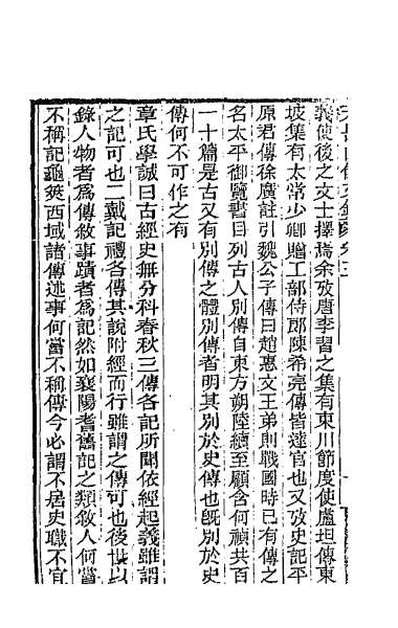 義使後之文士擇焉余攷唐李習之集有東川節度使盧坦傳東
坡集有太常少卿贈工部侍郎陳希亮傳皆達官也又攷史記平
原君傳徐廣註引魏公子傳曰趙惠文王弟則戰國時已有傳之
名太平御覽書目列古人別傳自東方朔陸續至顧含何禎共百
一十篇是古又有別傳之體別傳者明其別於史傳也旣別於史
傳何不可作之有
章氏學誠曰古經史無分科春秋三傳各記所聞依經起義雖謂
之記可也二戴記禮各傳其說附經而行雖謂之傳可也後世以
錄人物者爲傳敘事蹟者爲記然如襄陽耆舊記之類敘人何嘗
不稱記龜筴西域諸傳述事何嘗不稱傳今必謂不居史職不宜